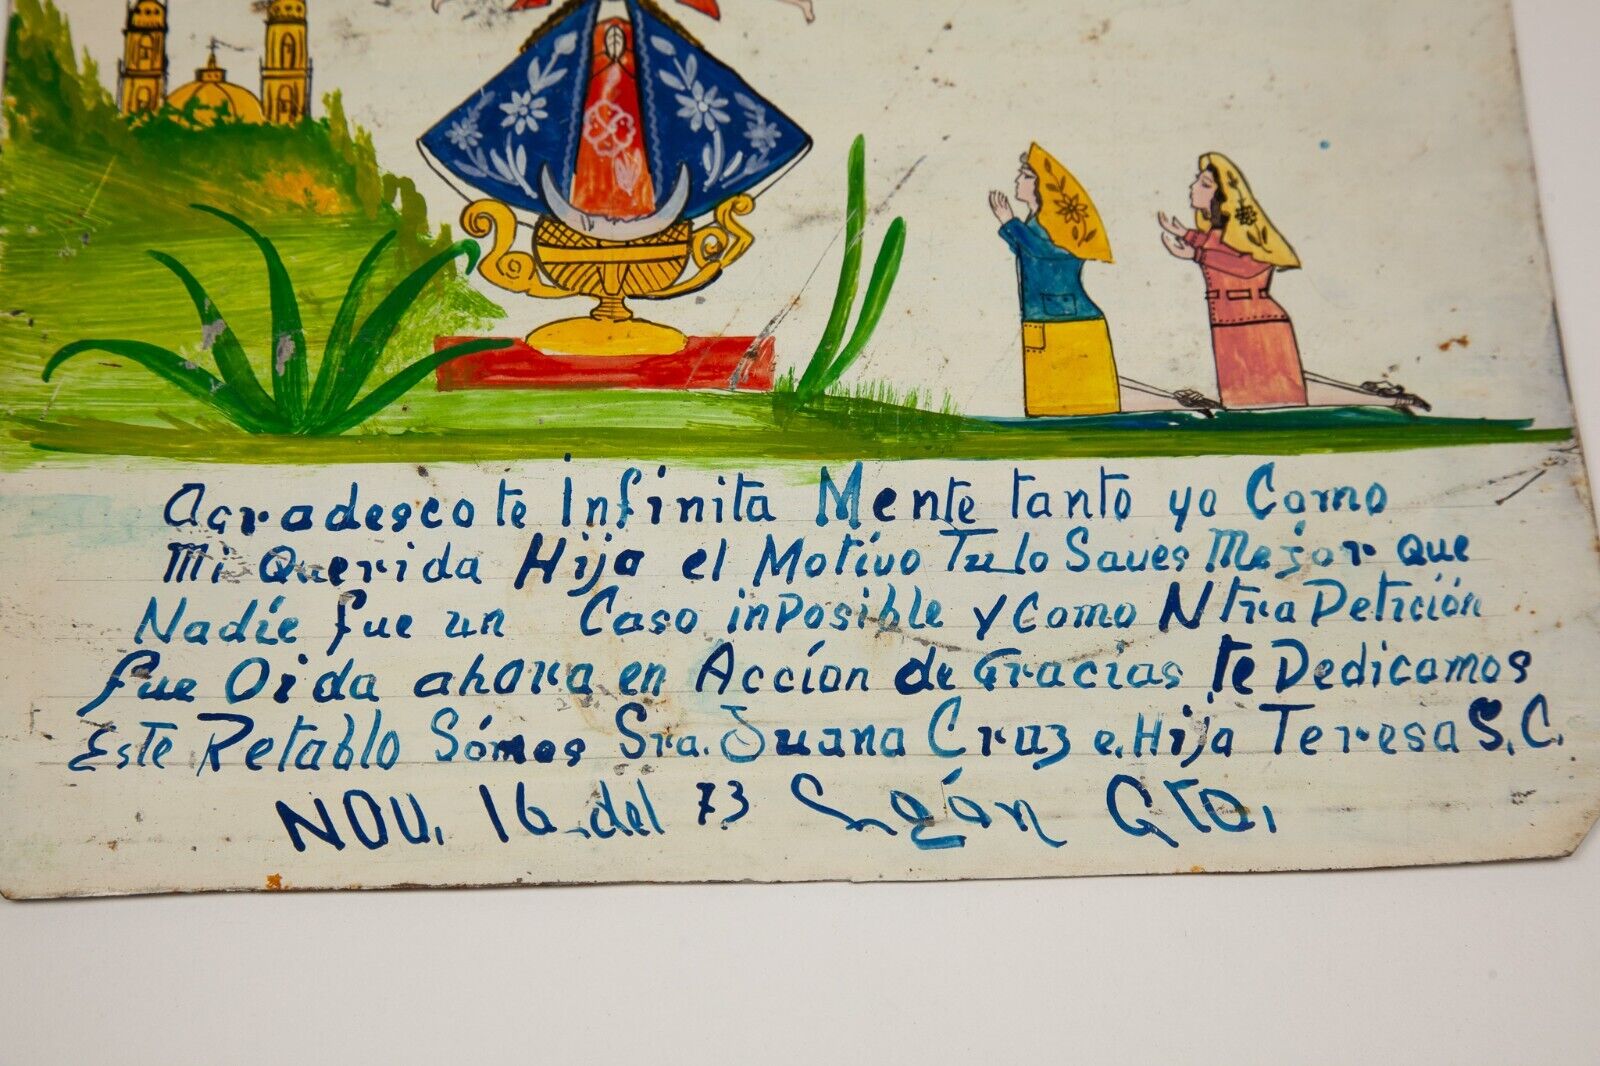 Agradescote Infinita Mente tanto yo Como
Mi Querida Hija el Motivo Tu lo Saves Mejor que
Nadie fue un Caso inposible y Como Ntra Petición
fue Oida ahora en Acción de Gracias te Dedicamos
Este Retablo Sómos Sra. Juana Cruz e Hija Teresa S.C.
NOV. 16 del 73 León Gto.